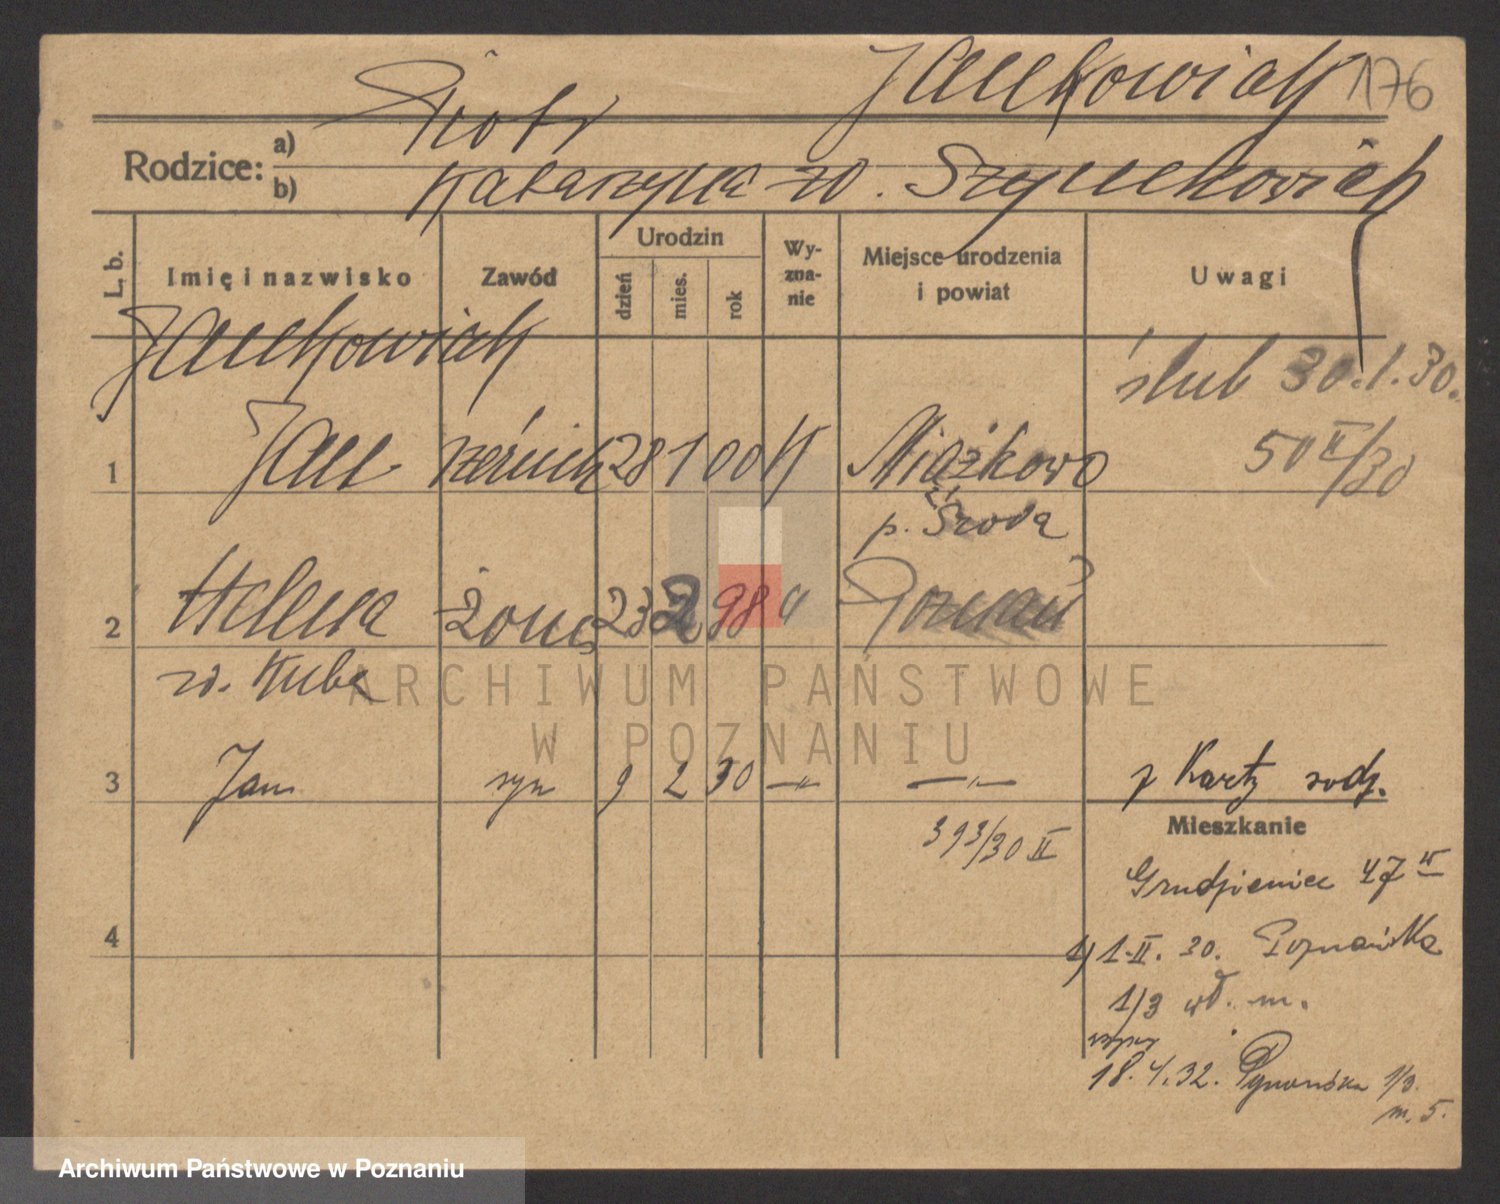 Jankowiak 176
Rodzice: a) Piotr
b) Katarzyna zd. Szymkowiak
L. b. Imię i nazwisko Zawód Urodzin dzień mies. rok Wy-zna-nie Miejsce urodzenia i powiat Uwagi
Jankowiak ślub 30.1.30.
1 Jan rzeźnik 28 1 00 K Miążkowo 50 II/30
p. Środa
2 Helena żona 23 2 98 " Poznań
zd. Kuba
3 Jan syn 9 2 30 —"— —"— z Karty rodz.
393/30 II
Mieszkanie
Grudzieniec 47
4
1) 1.II.30. Poznańska
1/3 wł. m.
18.4.32. 1/3
m. 5.
ARCHIWUM PAŃSTWOWE
W POZNANIU
Archiwum Państwowe w Poznaniu